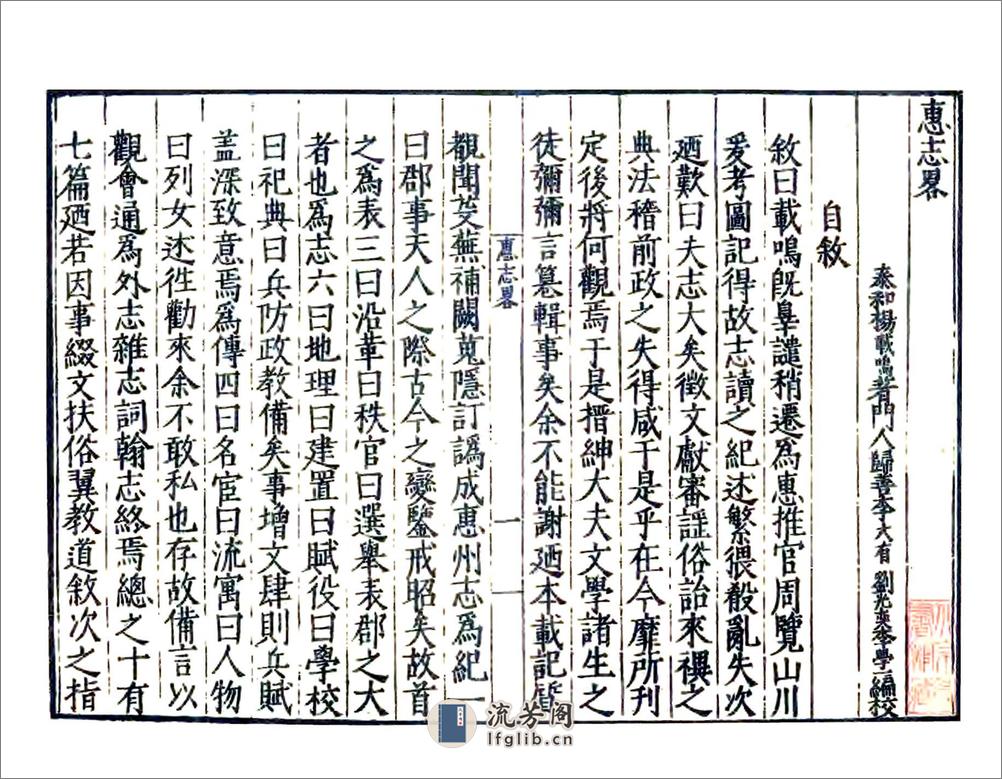 惠志畧
泰和楊載鳴著門人歸善李大有 劉光奕參學編校
自敘
敘曰載鳴既辠譴稍遷為惠推官周覽山川
爰考圖記得故志讀之紀述繁猥殽亂失次
廼歎曰夫志大矣徵文獻審謡俗詒來禩之
典法稽前政之失得咸于是乎在今靡所刊
定後將何觀焉于是搢紳大夫文學諸生之
徒彌彌言篹輯事矣余不能謝廼本載記暨
覩聞芟蕪補闕蒐隱訂譌成惠州志為紀一
曰郡事天人之際古今之變鑒戒昭矣故首
之為表三曰沿革曰秩官曰選舉表郡之大
者也為志六曰地理曰建置曰賦役曰學校
曰祀典曰兵防政教備矣事增文肆則兵賦
盖深致意焉為傳四曰名宦曰流寓曰人物
曰列女述徃勸來余不敢私也存故備言以
觀會通為外志雜志詞翰志終焉總之十有
七篇廼若因事綴文扶俗翼教道敘次之指
惠志畧
一
一
流芳阁
lfglib.cn